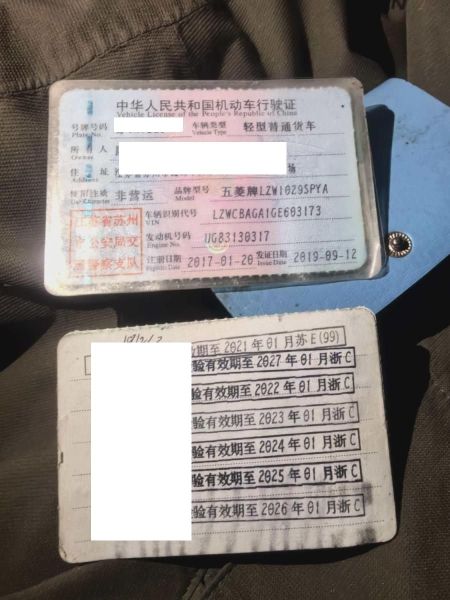 中华人民共和国机动车行驶证
Vehicle License of the People's Republic of China
号牌号码
Plate No.
车辆类型 轻型普通货车
Vehicle Type
所有人
Owner
住址 场
Address
使用性质 非营运
Use Character
品牌型号 五菱牌LZW1029SPYA
Model
江苏省苏州
市公安局交
通警察支队
车辆识别代号 LZWCBAGA1GE603173
VIN
发动机号码 UG83130317
Engine No.
注册日期 2017-01-20
Register Date
发证日期 2019-09-12
Issue Date
效期至2021年01月苏E(99)
验有效期至2027年01月浙C
验有效期至2022年01月浙C
验有效期至2023年01月浙C
验有效期至2024年01月浙C
验有效期至2025年01月浙C
验有效期至2026年01月浙C